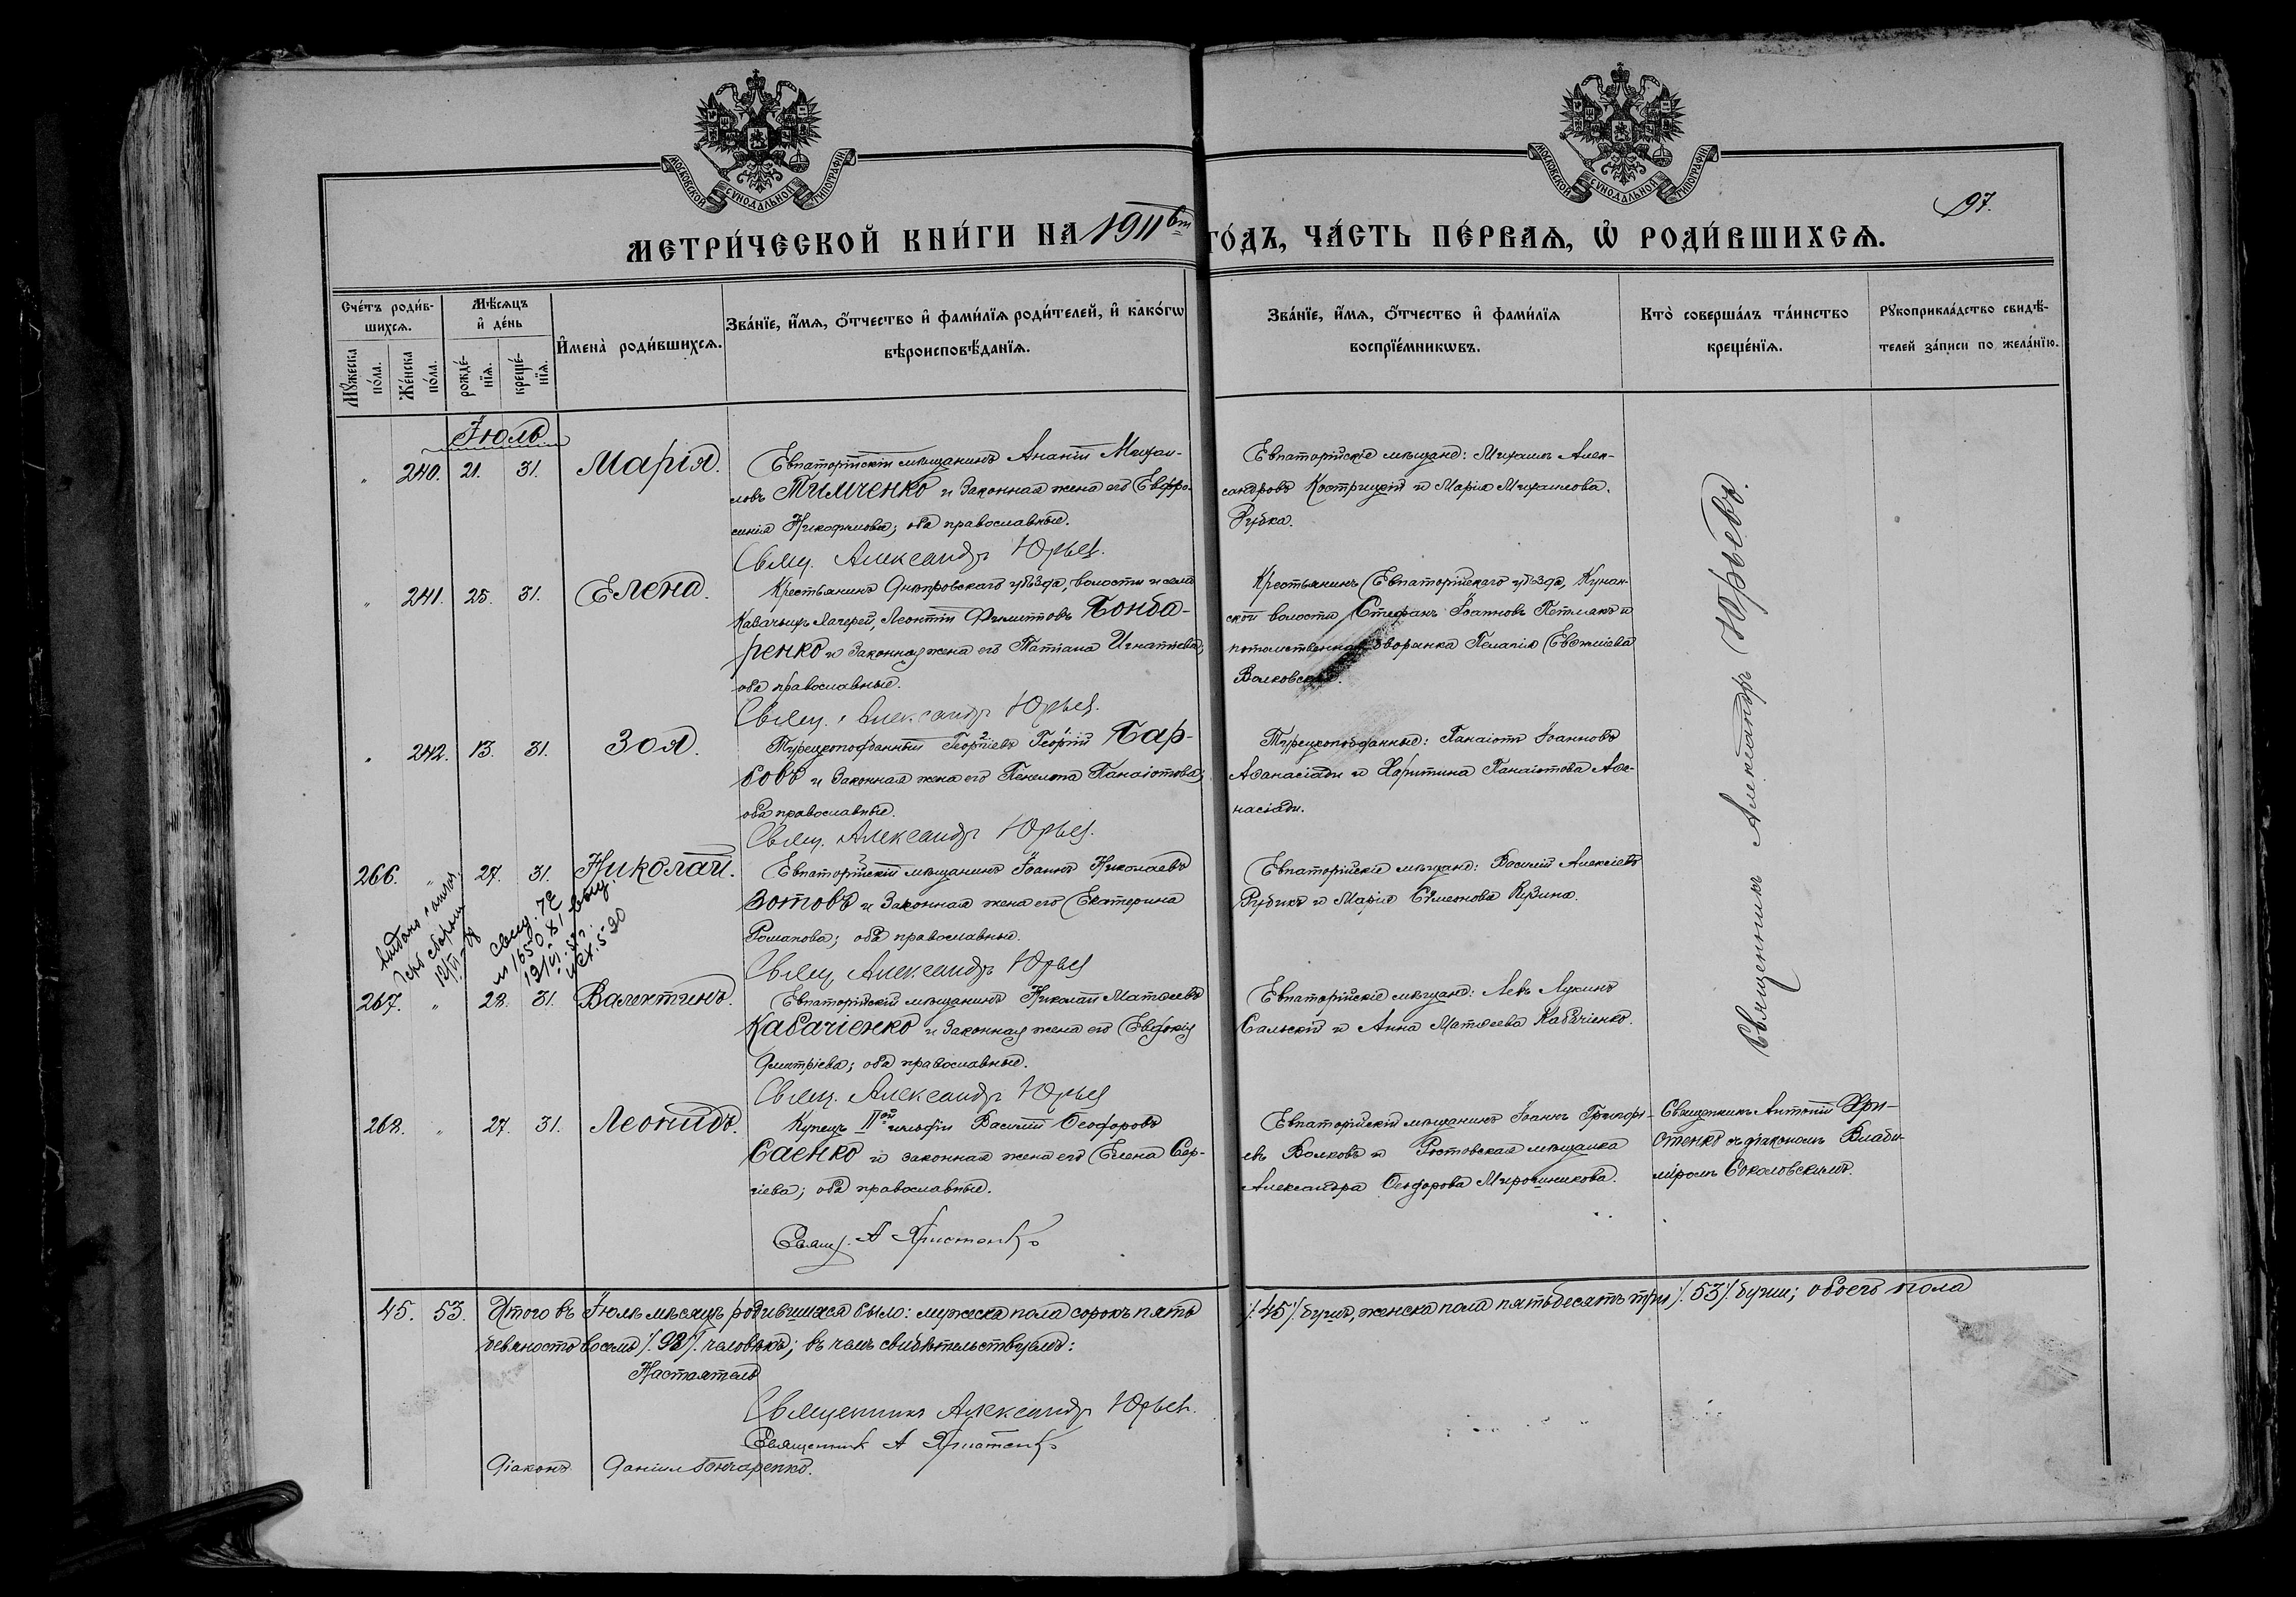 МОСКОВСКОЙ СѴНОДАЛЬНОЙ ТИПОГРАФІИ
МОСКОВСКОЙ СѴНОДАЛЬНОЙ ТИПОГРАФІИ
97.
МЕТРИ́ЧЕСКОЙ КНИ́ГИ НА 1911 ГО́ДЪ, ЧА́СТЬ ПЕ́РВАѦ, Ѡ҆ РОДИ́ВШИХСѦ.
Сче́тъ роди́в-
шихсѧ.
Мꙋ́жеска по́ла.
Же́нска по́ла.
Мѣ́сѧцъ
и҆ де́нь
рожде́-
нїѧ.
креще́-
нїѧ.
И҆мена̀ роди́вшихсѧ.
Зва́нїе, и҆́мѧ, ѻ҆́тчество и҆ фами́лїѧ роди́телей, и҆ како́гѡ
вѣроисповѣ́данїѧ.
Зва́нїе, и҆́мѧ, ѻ҆́тчество и҆ фами́лїѧ
воспрїе́мникѡвъ.
Кто̀ соверша́лъ та́инство
креще́нїѧ.
Рꙋкоприкла́дство свидѣ́-
телей за́писи по жела́нїю.
Іюль
" 240. 21. 31. Марія.
Евпаторійскій мѣщанинъ Ананій Михаи-
ловъ Тимченко и законная жена его Евфро-
синія Никифорова; оба православные.
Свящ. Александр Юрьев.
Евпаторійскіе мѣщане: Михаилъ Алек-
сандровъ Кострицкій и Марія Михаилова
Рубка.
" 241. 25. 31. Елена.
Крестьянинъ Днѣпровскаго уѣзда, волости и села
Казачьихъ Лагерей, Леонтій Филипповъ Бонда-
ренко и законная жена его Татіана Игнатьева;
оба православные.
Свящ. Александр Юрьев.
Крестьянинъ Евпаторійскаго уѣзда, Кунан-
ской волости Стефанъ Іоанновъ Петлякъ и
потомственная дворянка Пелагія Евѳиміева
Волковская.
" 242. 13. 31. Зоя.
Турецкоподданный Георгіевъ 2 Георгій 1 Бар-
бовъ и законная жена его Пенелопа Панаіотова;
оба православные.
Свящ. Александр Юрьев.
Турецкоподданные: Панаіотъ Іоанновъ
Аѳанасіади и Харитина Панаіотова Аѳа-
насіади.
266. " 27. 31. Николай.
Евпаторійскій мѣщанинъ Іоаннъ Николаевъ
Зотовъ и законная жена его Екатерина
Романова; оба православные.
Свящ. Александр Юрьев
Евпаторійскіе мѣщане: Василій Алексіевъ
Рубикъ и Марія Симеонова Кузина.
267. " 28. 31. Валентинъ.
Евпаторійскій мѣщанинъ Николай Матѳеевъ
Кабаченко и законная жена его Евдокія
Димитріева; оба православные.
Свящ. Александр Юрьев
Евпаторійскіе мѣщане: Левъ Лукинъ
Сальскій и Анна Матѳеева Кабаченко.
Священникъ Александръ Юрьевъ.
268. " 27. 31. Леонидъ.
Купецъ IIой гильдіи Василій Ѳеодоровъ
Саенко и законная жена его Елена Сер-
гіева; оба православные.
Свящ. А Христенко
Евпаторійскій мѣщанинъ Іоаннъ Григорі-
евъ Волковъ и Ростовская мѣщанка
Александра Ѳеодорова Мирошникова.
Священникъ Антоній Хри-
стенко съ діакономъ Влади-
міромъ Соколовскимъ.
45. 53. Итого въ Іюлѣ мѣсяцѣ родившихся было: мужеска пола сорокъ пять /.45/. душъ, женска пола пятьдесятъ три /.53/. души; обоего пола
девяносто восемь /.98/. человѣкъ; въ чемъ свидѣтельствуемъ:
Настоятель
Священникъ Александр Юрьев.
Священник А Христенко
Діаконъ Даніилъ Гончаренко.